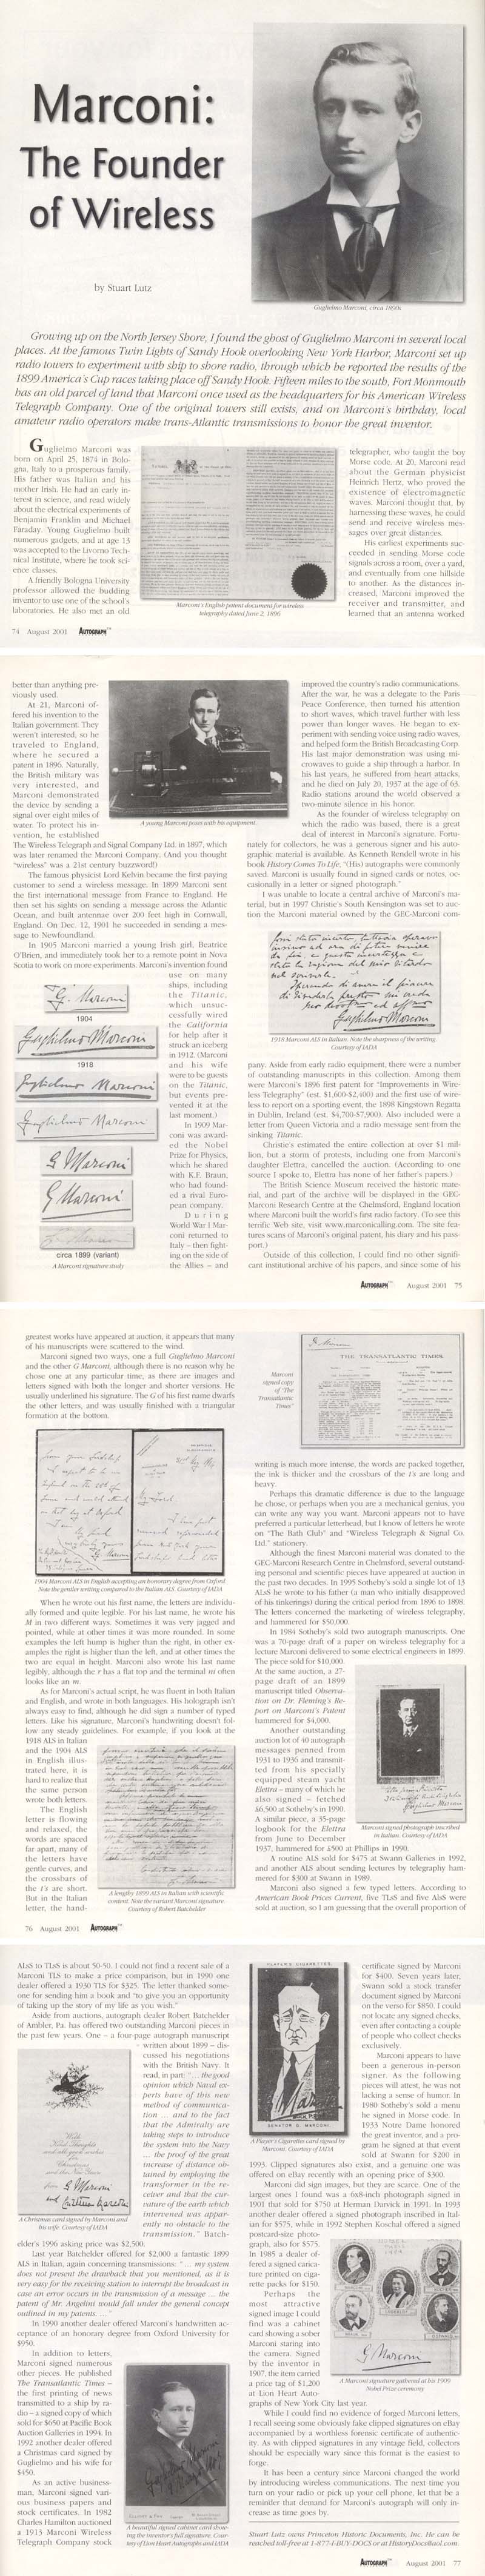 Marconi:
The Founder
of Wireless
by Stuart Lutz
Guglielmo Marconi, circa 1890s
Growing up on the North Jersey Shore, I found the ghost of Guglielmo Marconi in several local
places. At the famous Twin Lights of Sandy Hook overlooking New York Harbor, Marconi set up
radio towers to experiment with ship to shore radio, through which he reported the results of the
1899 America's Cup races taking place off Sandy Hook. Fifteen miles to the south, Fort Monmouth
has an old parcel of land that Marconi once used as the headquarters for his American Wireless
Telegraph Company. One of the original towers still exists, and on Marconi's birthday, local
amateur radio operators make trans-Atlantic transmissions to honor the great inventor.
Guglielmo Marconi was
born on April 25, 1874 in Bolo-
gna, Italy to a prosperous family.
His father was Italian and his
mother Irish. He had an early in-
terest in science, and read widely
about the electrical experiments of
Benjamin Franklin and Michael
Faraday. Young Guglielmo built
numerous gadgets, and at age 13
was accepted to the Livorno Tech-
nical Institute, where he took sci-
ence classes.
A friendly Bologna University
professor allowed the budding
inventor to use one of the school's
laboratories. He also met an old
Marconi's English patent document for wireless
telegraphy dated June 2, 1896
telegrapher, who taught the boy
Morse code. At 20, Marconi read
about the German physicist
Heinrich Hertz, who proved the
existence of electromagnetic
waves. Marconi thought that, by
harnessing these waves, he could
send and receive wireless mes-
sages over great distances.
His earliest experiments suc-
ceeded in sending Morse code
signals across a room, over a yard,
and eventually from one hillside
to another. As the distances in-
creased, Marconi improved the
receiver and transmitter, and
learned that an antenna worked
74 August 2001 AUTOGRAPH
better than anything pre-
viously used.
At 21, Marconi of-
fered his invention to the
Italian government. They
weren't interested, so he
traveled to England,
where he secured a
patent in 1896. Naturally,
the British military was
very interested, and
Marconi demonstrated
the device by sending a
signal over eight miles of
water. To protect his in-
vention, he established
The Wireless Telegraph and Signal Company Ltd. in 1897, which
was later renamed the Marconi Company. (And you thought
"wireless" was a 21st century buzzword!)
The famous physicist Lord Kelvin became the first paying
customer to send a wireless message. In 1899 Marconi sent
the first international message from France to England. He
then set his sights on sending a message across the Atlantic
Ocean, and built antennae over 200 feet high in Cornwall,
England. On Dec. 12, 1901 he succeeded in sending a mes-
sage to Newfoundland.
In 1905 Marconi married a young Irish girl, Beatrice
O'Brien, and immediately took her to a remote point in Nova
Scotia to work on more experiments. Marconi's invention found
use on many
ships, including
the Titanic,
which unsuc-
cessfully wired
the California
for help after it
struck an iceberg
in 1912. (Marconi
and his wife
were to be guests
on the Titanic,
but events pre-
vented it at the
last moment.)
In 1909 Mar-
coni was award-
ed the Nobel
Prize for Physics,
which he shared
with K.F. Braun,
who had found-
ed a rival Euro-
pean company.
During
World War I Mar-
coni returned to
Italy – then fight-
ing on the side of
the Allies – and
G. Marconi
1904
Guglielmo Marconi
1918
Guglielmo Marconi
Guglielmo Marconi
G Marconi
G Marconi
circa 1899 (variant)
A Marconi signature study
A young Marconi poses with his equipment.
improved the country's radio communications.
After the war, he was a delegate to the Paris
Peace Conference, then turned his attention
to short waves, which travel further with less
power than longer waves. He began to ex-
periment with sending voice using radio waves,
and helped form the British Broadcasting Corp.
His last major demonstration was using mi-
crowaves to guide a ship through a harbor. In
his last years, he suffered from heart attacks,
and he died on July 20, 1937 at the age of 63.
Radio stations around the world observed a
two-minute silence in his honor.
As the founder of wireless telegraphy on
which the radio was based, there is a great
deal of interest in Marconi's signature. Fortu-
nately for collectors, he was a generous signer and his auto-
graphic material is available. As Kenneth Rendell wrote in his
book History Comes To Life, "(His) autographs were commonly
saved. Marconi is usually found in signed cards or notes, oc-
casionally in a letter or signed photograph."
I was unable to locate a central archive of Marconi's ma-
terial, but in 1997 Christie's South Kensington was set to auc-
tion the Marconi material owned by the GEC-Marconi com-
Guglielmo Marconi
1918 Marconi ALS in Italian. Note the sharpness of the writing.
Courtesy of IADA
pany. Aside from early radio equipment, there were a number
of outstanding manuscripts in this collection. Among them
were Marconi's 1896 first patent for "Improvements in Wire-
less Telegraphy" (est. $1,600-$2,400) and the first use of wire-
less to report on a sporting event, the 1898 Kingstown Regatta
in Dublin, Ireland (est. $4,700-$7,900). Also included were a
letter from Queen Victoria and a radio message sent from the
sinking Titanic.
Christie's estimated the entire collection at over $1 mil-
lion, but a storm of protests, including one from Marconi's
daughter Elettra, cancelled the auction. (According to one
source I spoke to, Elettra has none of her father's papers.)
The British Science Museum received the historic mate-
rial, and part of the archive will be displayed in the GEC-
Marconi Research Centre at the Chelmsford, England location
where Marconi built the world's first radio factory. (To see this
terrific Web site, visit www.marconicalling.com. The site fea-
tures scans of Marconi's original patent, his diary and his pass-
port.)
Outside of this collection, I could find no other signifi-
cant institutional archive of his papers, and since some of his
AUTOGRAPH August 2001 75
greatest works have appeared at auction, it appears that many
of his manuscripts were scattered to the wind.
Marconi signed two ways, one a full Guglielmo Marconi
and the other G Marconi, although there is no reason why he
chose one at any particular time, as there are images and
letters signed with both the longer and shorter versions. He
usually underlined his signature. The G of his first name dwarfs
the other letters, and was usually finished with a triangular
formation at the bottom.
1904 Marconi ALS in English accepting an honorary degree from Oxford.
Note the gentler writing compared to the Italian ALS. Courtesy of IADA
When he wrote out his first name, the letters are individu-
ally formed and quite legible. For his last name, he wrote his
M in two different ways. Sometimes it was very jagged and
pointed, while at other times it was more rounded. In some
examples the left hump is higher than the right, in other ex-
amples the right is higher than the left, and at other times the
two are equal in height. Marconi also wrote his last name
legibly, although the r has a flat top and the terminal ni often
looks like an m.
As for Marconi's actual script, he was fluent in both Italian
and English, and wrote in both languages. His holograph isn't
always easy to find, although he did sign a number of typed
letters. Like his signature, Marconi's handwriting doesn't fol-
low any steady guidelines. For example, if you look at the
1918 ALS in Italian
and the 1904 ALS
in English illus-
trated here, it is
hard to realize that
the same person
wrote both letters.
The English
letter is flowing
and relaxed, the
words are spaced
far apart, many of
the letters have
gentle curves, and
the crossbars of
the t's are short.
But in the Italian
letter, the hand-
A lengthy 1899 ALS in Italian with scientific
content. Note the variant Marconi signature.
Courtesy of Robert Batchelder
76 August 2001 AUTOGRAPH
Marconi
signed copy
of "The
Transatlantic
Times"
THE TRANSATLANTIC TIMES.
writing is much more intense, the words are packed together,
the ink is thicker and the crossbars of the t's are long and
heavy.
Perhaps this dramatic difference is due to the language
he chose, or perhaps when you are a mechanical genius, you
can write any way you want. Marconi appears not to have
preferred a particular letterhead, but I know of letters he wrote
on "The Bath Club" and "Wireless Telegraph & Signal Co.
Ltd." stationery.
Although the finest Marconi material was donated to the
GEC-Marconi Research Centre in Chelmsford, several outstand-
ing personal and scientific pieces have appeared at auction in
the past two decades. In 1995 Sotheby's sold a single lot of 13
ALsS he wrote to his father (a man who initially disapproved
of his tinkerings) during the critical period from 1896 to 1898.
The letters concerned the marketing of wireless telegraphy,
and hammered for $50,000.
In 1984 Sotheby's sold two autograph manuscripts. One
was a 70-page draft of a paper on wireless telegraphy for a
lecture Marconi delivered to some electrical engineers in 1899.
The piece sold for $10,000.
At the same auction, a 27-
page draft of an 1899
manuscript titled Observa-
tion on Dr. Fleming's Re-
port on Marconi's Patent
hammered for $4,000.
Another outstanding
auction lot of 40 autograph
messages penned from
1931 to 1936 and transmit-
ted from his specially
equipped steam yacht
Elettra – many of which he
also signed – fetched
£6,500 at Sotheby's in 1990.
A similar piece, a 35-page
logbook for the Elettra
from June to December
1937, hammered for $500 at Phillips in 1990.
Marconi signed photograph inscribed
in Italian. Courtesy of IADA
A routine ALS sold for $475 at Swann Galleries in 1992,
and another ALS about sending lectures by telegraphy ham-
mered for $300 at Swann in 1991.
Marconi also signed a few typed letters. According to
American Book Prices Current, five TLsS and five AlsS were
sold at auction, so I am guessing that the overall proportion of
ALsS to TLsS is about 50-50. I could not find a recent sale of a
Marconi TLS to make a price comparison, but in 1990 one
dealer offered a 1930 TLS for $325. The letter thanked some-
one for sending him a book and "to give you an opportunity
of taking up the story of my life as you wish."
Aside from auctions, autograph dealer Robert Batchelder
of Ambler, Pa. has offered two outstanding Marconi pieces in
the past few years. One – a four-page autograph manuscript
written about 1899 – dis-
cussed his negotiations
with the British Navy. It
read, in part: "... the good
opinion which Naval ex-
perts have of this new
method of communica-
tion ... and to the fact
that the Admiralty are
taking steps to introduce
the system into the Navy
... the proof of the great
increase of distance ob-
tained by employing the
transformer in the re-
ceiver and that the cur-
vature of the earth which
intervened was appar-
ently no obstacle to the
transmission." Batch-
elder's 1996 asking price was $2,500.
With
Kind Thoughts
and all good wishes
for
Christmas
and the New Year
from G. Marconi
and
A Christmas card signed by Marconi and
his wife. Courtesy of IADA
Last year Batchelder offered for $2,000 a fantastic 1899
ALS in Italian, again concerning transmissions: "... my system
does not present the drawback that you mentioned, as it is
very easy for the receiving station to interrupt the broadcast in
case an error occurs in the transmission of a message ... the
patent of Mr. Angelini would fall under the general concept
outlined in my patents. ..."
In 1990 another dealer offered Marconi's handwritten ac-
ceptance of an honorary degree from Oxford University for
$950.
In addition to letters,
Marconi signed numerous
other pieces. He published
The Transatlantic Times –
the first printing of news
transmitted to a ship by ra-
dio – a signed copy of which
sold for $650 at Pacific Book
Auction Galleries in 1994. In
1992 another dealer offered
a Christmas card signed by
Guglielmo and his wife for
$450.
As an active business-
man, Marconi signed vari-
ous business papers and
stock certificates. In 1982
Charles Hamilton auctioned
a 1913 Marconi Wireless
Telegraph Company stock
A beautiful signed cabinet card show-
ing the inventor's full signature. Cour-
tesy of Lion Heart Autographs and IADA
PLAYER'S CIGARETTES
SENATOR G. MARCONI.
A Player's Cigarettes card signed by
Marconi. Courtesy of IADA
certificate signed by Marconi
for $400. Seven years later,
Swann sold a stock transfer
document signed by Marconi
on the verso for $850. I could
not locate any signed checks,
even after contacting a couple
of people who collect checks
exclusively.
Marconi appears to have
been a generous in-person
signer. As the following
pieces will attest, he was not
lacking a sense of humor. In
1980 Sotheby's sold a menu
he signed in Morse code. In
1933 Notre Dame honored
the great inventor, and a pro-
gram he signed at that event
sold at Swann for $200 in
1993. Clipped signatures also exist, and a genuine one was
offered on eBay recently with an opening price of $300.
Marconi did sign images, but they are scarce. One of the
largest ones I found was a 6x8-inch photograph signed in
1901 that sold for $750 at Herman Darvick in 1991. In 1993
another dealer offered a signed photograph inscribed in Ital-
ian for $575, while in 1992 Stephen Koschal offered a signed
postcard-size photo-
graph, also for $575.
In 1985 a dealer of-
fered a signed carica-
ture printed on ciga-
rette packs for $150.
Perhaps the
most attractive
signed image I could
find was a cabinet
card showing a sober
Marconi staring into
the camera. Signed
by the inventor in
1907, the item carried
a price tag of $1,200
at Lion Heart Auto-
graphs of New York City last year.
G. Marconi
A Marconi signature gathered at his 1909
Nobel Prize ceremony
While I could find no evidence of forged Marconi letters,
I recall seeing some obviously fake clipped signatures on eBay
accompanied by a worthless forensic certificate of authentic-
ity. As with clipped signatures in any vintage field, collectors
should be especially wary since this format is the easiest to
forge.
It has been a century since Marconi changed the world
by introducing wireless communications. The next time you
turn on your radio or pick up your cell phone, let that be a
reminder that demand for Marconi's autograph will only in-
crease as time goes by.
Stuart Lutz owns Princeton Historic Documents, Inc. He can be
reached toll-free at 1-877-I-BUY-DOCS or at HistoryDocs@aol.com.
AUTOGRAPH August 2001 77